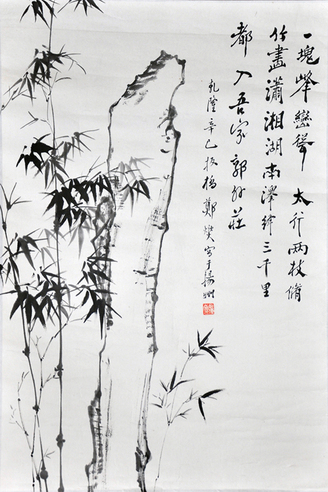 一塊峰巒聳太行兩枝脩
竹盡瀟湘湖南澤綘三千里
都入吾家郭外莊
乾隆辛巳板橋鄭燮寫于揚州